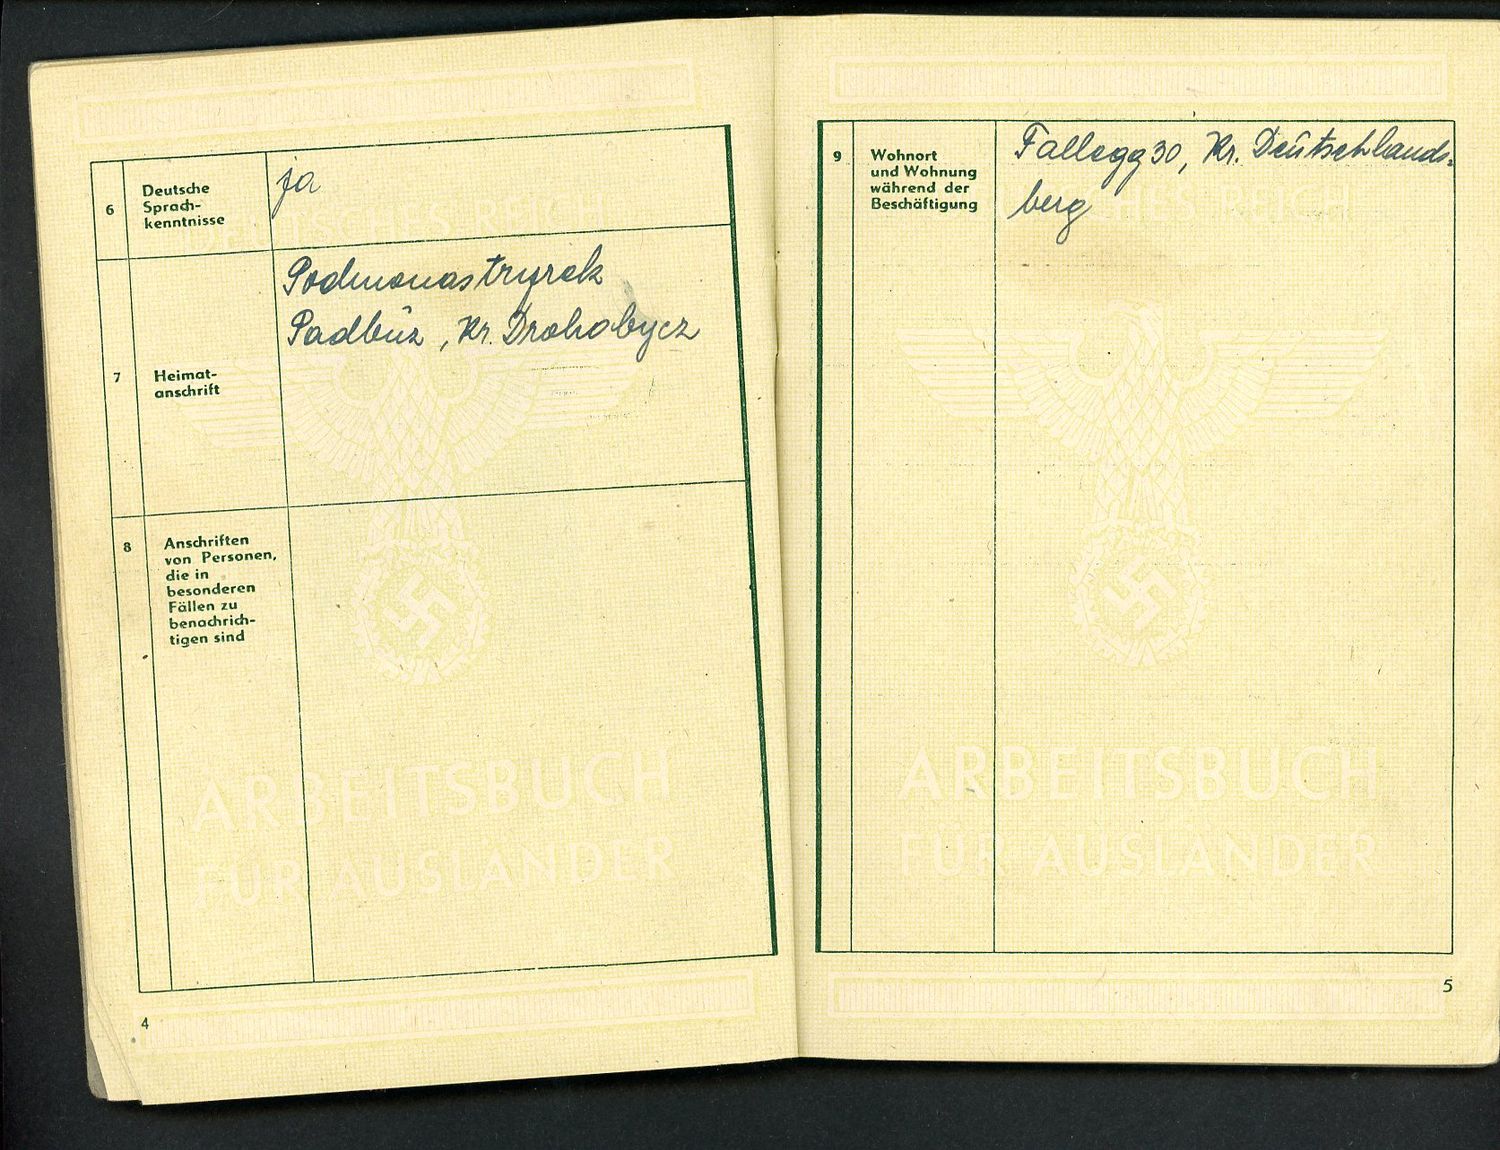 DEUTSCHES REICH
6
Deutsche
Sprach-
kenntnisse
ja
7
Heimat-
anschrift
Podmonastyrek
Padbuz, Kr. Drohobycz
8
Anschriften
von Personen,
die in
besonderen
Fällen zu
benachrich-
tigen sind
ARBEITSBUCH
FÜR AUSLÄNDER
4
9
Wohnort
und Wohnung
während der
Beschäftigung
Fallegg 30, Kr. Deutschlands-
berg
DEUTSCHES REICH
ARBEITSBUCH
FÜR AUSLÄNDER
5